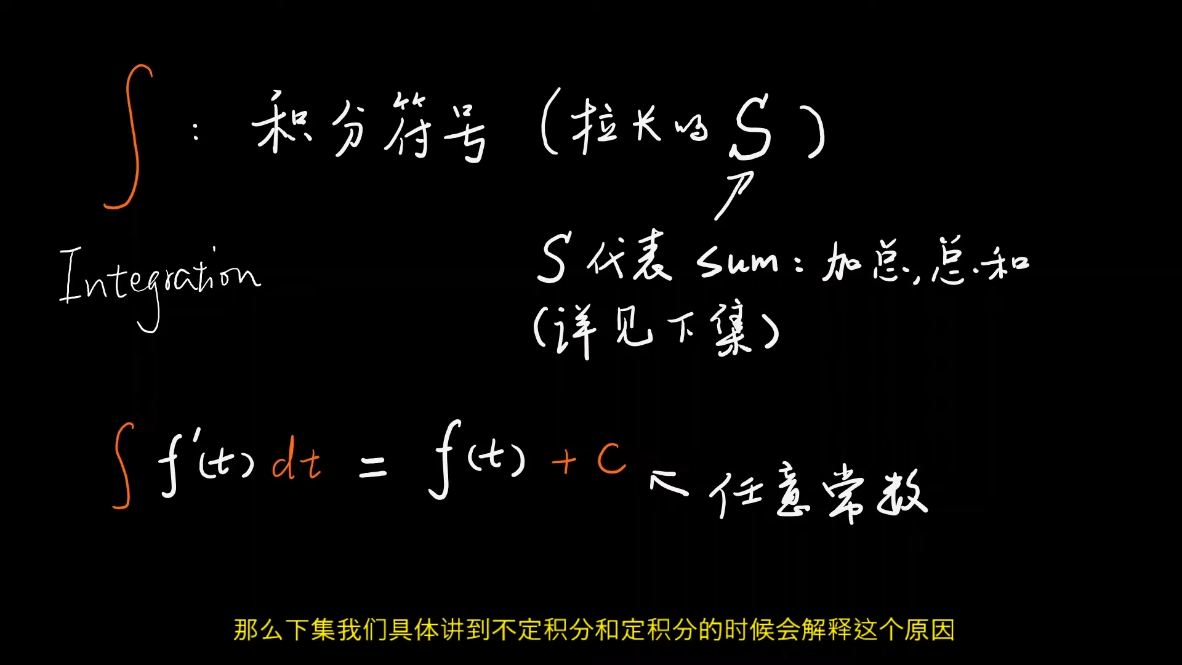 ∫ : 积分符号 (拉长的 S)
Integration
S 代表 sum : 加总, 总和
(详见下集)
∫ f'(t) dt = f(t) + C ↖ 任意常数
那么下集我们具体讲到不定积分和定积分的时候会解释这个原因